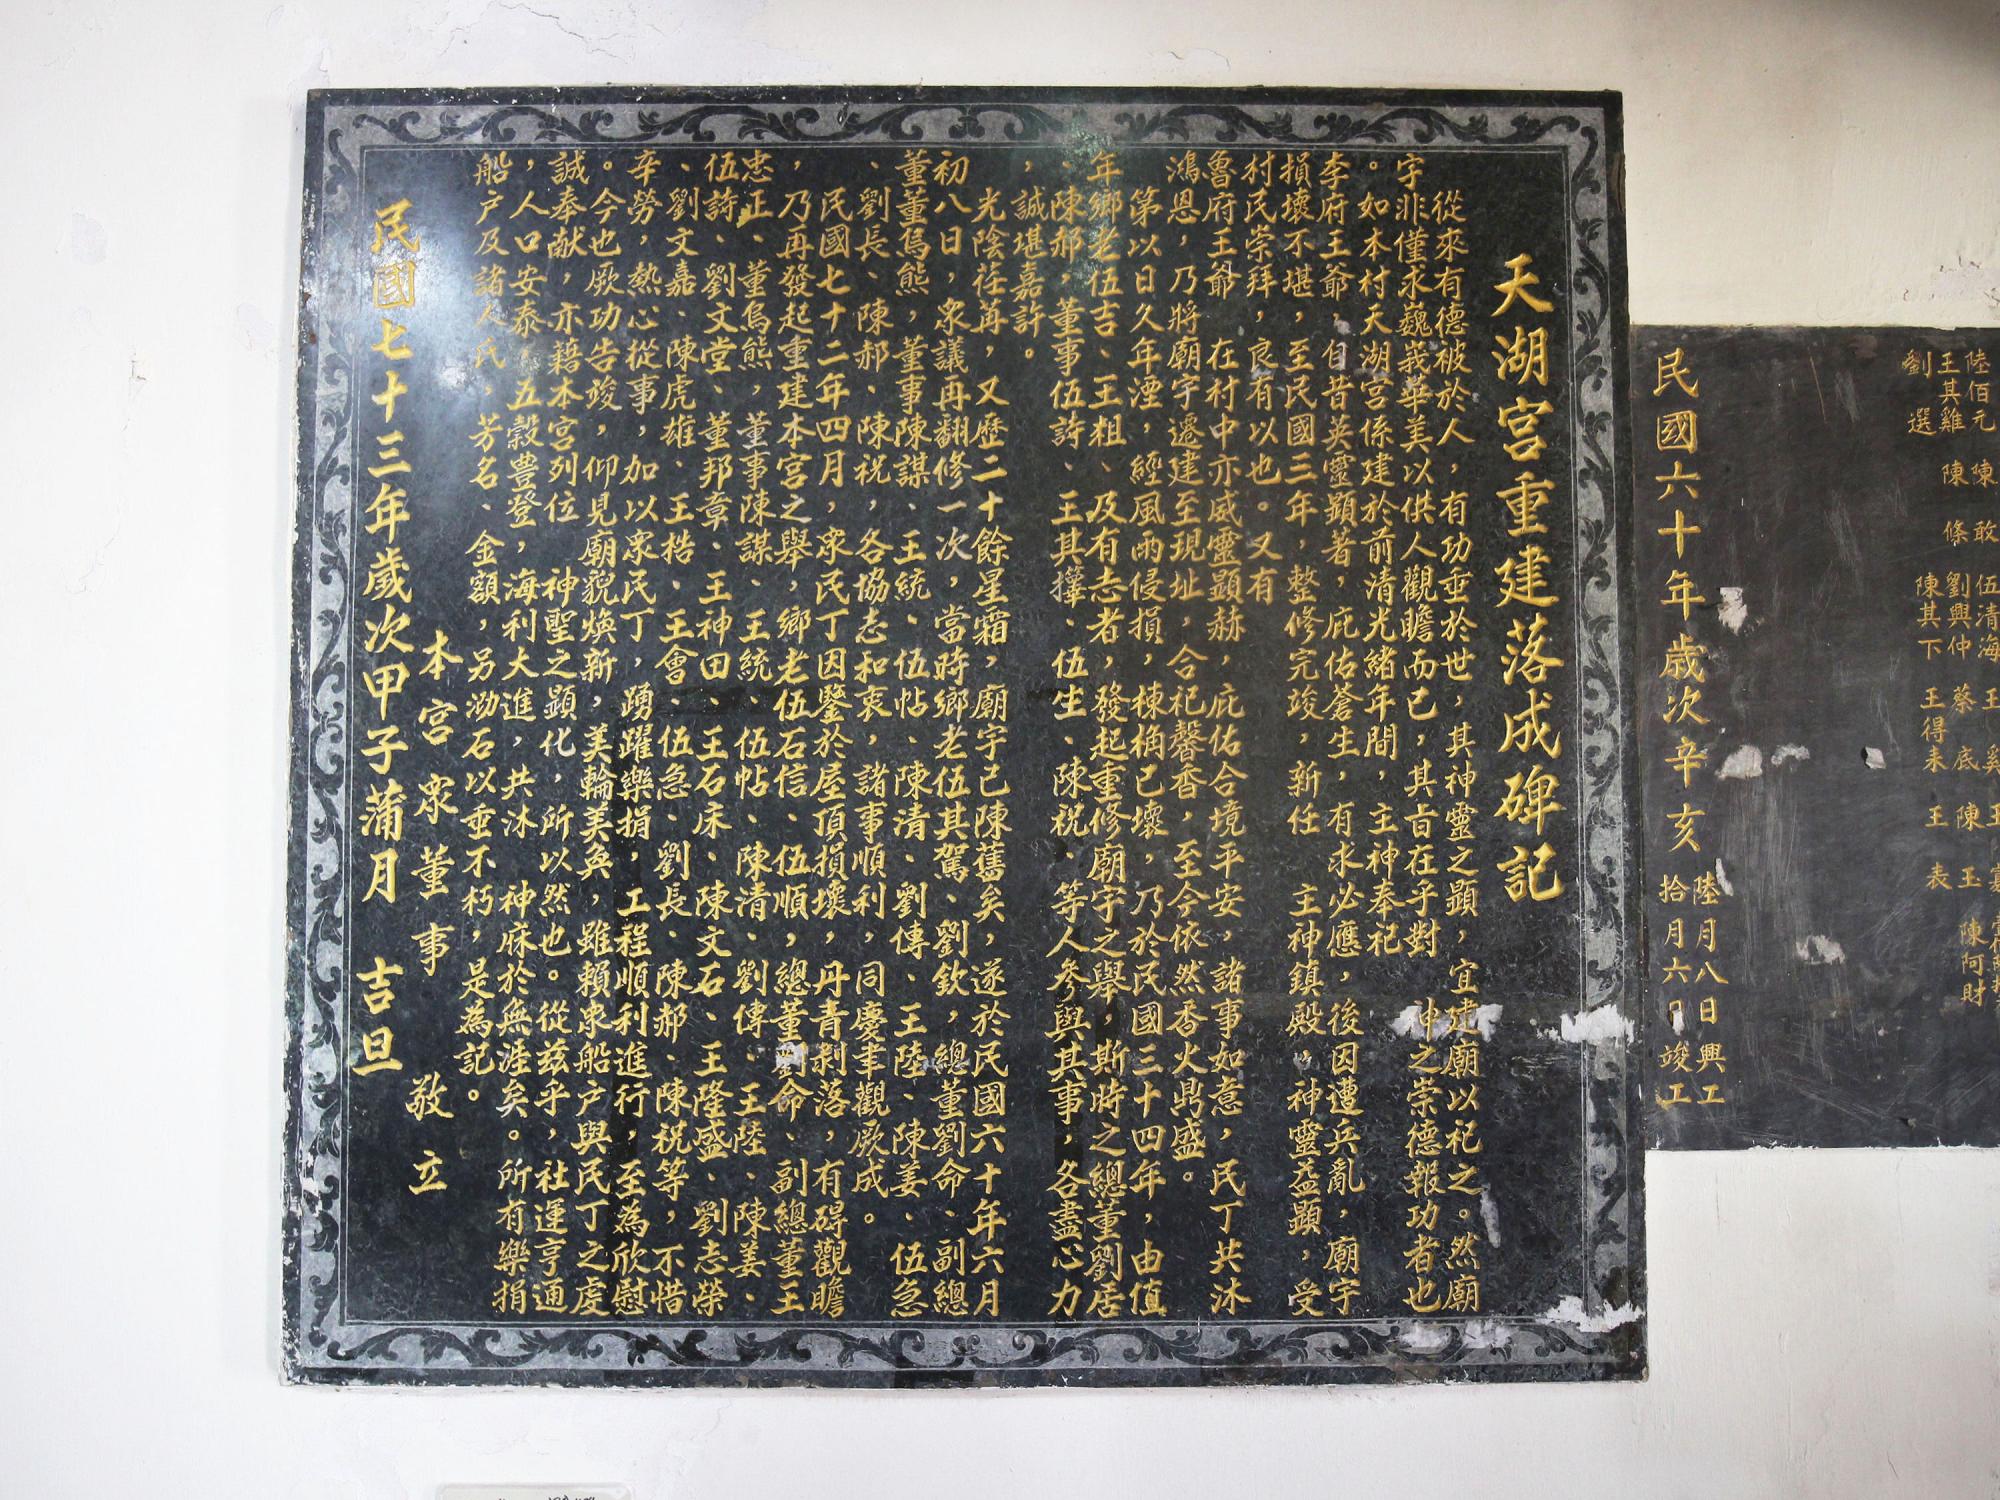 天湖宮重建落成碑記
從來有德被於人，有功垂於世，其神靈之顯，宜建廟以祀之。然廟
宇非僅求巍峩華美以供人觀瞻而已，其旨在乎對　神之崇德報功者也
。如本村天湖宮係建於前清光緒年間，主神奉祀
李府王爺，自昔英靈顯著，庇佑蒼生，有求必應，後因遭兵亂，廟宇
損壞不堪，至民國三年，整修完竣，新任　主神鎮殿，神靈益顯，受
村民崇拜，良有以也。又有
魯府王爺　在村中亦威靈顯赫，庇佑合境平安，諸事如意，民丁共沐
鴻恩，乃將廟宇遷建至現址，合祀馨香，至今依然香火鼎盛。
第以日久年湮，經風雨侵損，棟桷已壞，乃於民國三十四年，由值
年鄉老伍吉、王柤、及有志者，發起重修廟宇之舉，斯時之總董劉居
、陳郝，董事伍詩、王其擇、伍生、陳祝、等人參與其事，各盡心力
，誠堪嘉許。
光陰荏苒，又歷二十餘星霜，廟宇已陳舊矣，遂於民國六十年六月
初八日，眾議再翻修一次，當時鄉老伍其駕、劉欽，總董劉命、副總
董董烏熊，董事陳謀、王統、伍帖、陳清、劉傳、王陸、陳姜、伍急
、劉長、陳郝、陳祝，各協志和衷，諸事順利，同慶聿觀厥成。
民國七十二年四月，眾民丁因鑒於屋頂損壞，丹青剝落，有碍觀瞻
，乃再發起重建本宮之舉，鄉老伍石信、伍順，總董劉命、副總董王
忠正、董烏熊，董事陳謀、王統、伍帖、陳清、劉傳、王陸、陳姜、
伍詩、劉文堂、董邦章、王神田、王石床、陳文石、王隆盛、劉志榮
、劉文嘉、陳虎雄、王梏、王會、伍急、劉長、陳郝、陳祝等，不惜
辛勞，熱心從事，加以眾民丁，踴躍樂捐，工程順利進行，至為欣慰
。今也厥功告竣，仰見廟貌煥新，美輪美奐，雖賴眾船户與民丁之虔
誠奉献，亦藉本宮列位　神聖之顯化，所以然也。從兹乎，社運亨通
，人口安泰，五穀豊登，海利大進，共沐　神庥於無涯矣。所有樂捐
船户及諸人氏，芳名、金額，另泐石以垂不朽，是為記。
本宮眾董事　敬立
民國七十三年歲次甲子蒲月　吉旦
陸佰元　陳敢　伍清海
王其雞　陳條　劉興仲　蔡底　陳玉　陳阿財
劉選　陳其下　王得未　王表
民國六十年歲次辛亥
陸月八日興工
拾月六日竣工